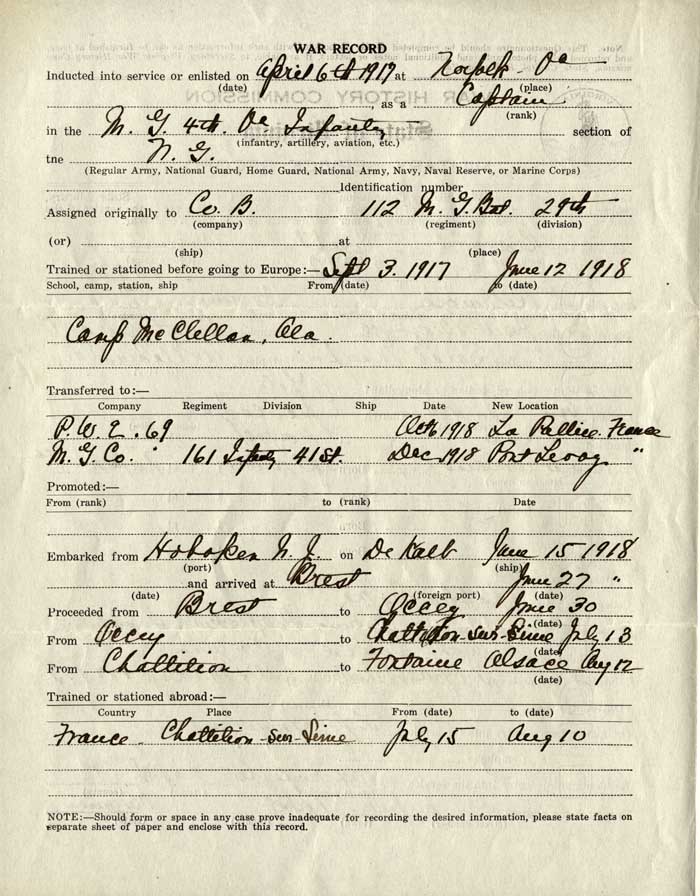 WAR RECORD
Inducted into service or enlisted on April 6th 1917 at Norfolk Va
(date) (place)
, as a Captain
(rank)
in the M. G. 4th. Va Infantry section of
(infantry, artillery, aviation, etc.)
tne N. G.
(Regular Army, National Guard, Home Guard, National Army, Navy, Naval Reserve, or Marine Corps)
Identification number
Assigned originally to Co. B. 112 M. G. Bat. 29th
(company) (regiment) (division)
(or) at
(ship) (place)
Trained or stationed before going to Europe:— Sept 3. 1917 June 12 1918
School, camp, station, ship From (date) to (date)
Camp McClellan, Ala.
Transferred to:—
Company Regiment Division Ship Date New Location
P. W. E. 69 Oct 6 1918 La Pallice France
M. G. Co. " 161 Infanty 41st. Dec 1918 Port Leroy "
Promoted:—
From (rank) to (rank) Date
Embarked from Hoboken N. J. on De Kalb June 15 1918
(port) (ship)
and arrived at Brest June 27 "
(date) (foreign port) (date)
Proceeded from Brest to Occey June 30
(date)
From Occey to Chattition-sur-Sime July 13
(date)
From Chattition to Fontaine Alsace Aug 12
(date)
Trained or stationed abroad:—
Country Place From (date) to (date)
France Chattition-sur-Sime July 15 Aug 10
NOTE:—Should form or space in any case prove inadequate for recording the desired information, please state facts on
separate sheet of paper and enclose with this record.